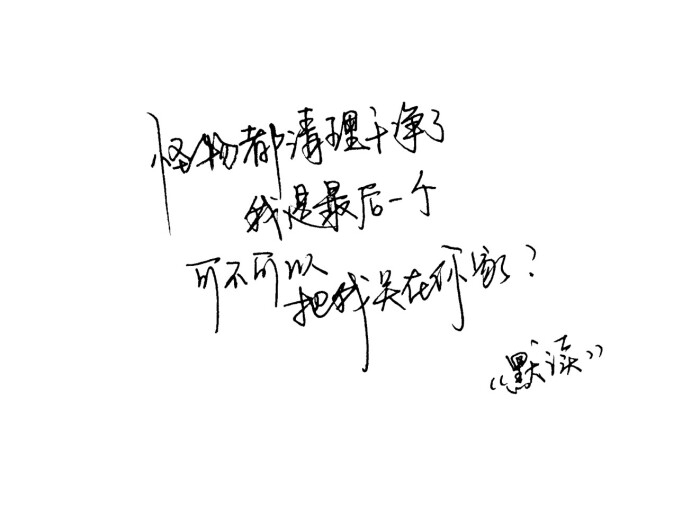 怪物都清理干净了
我是最后一个
可不可以把我关在你家？
《默读》